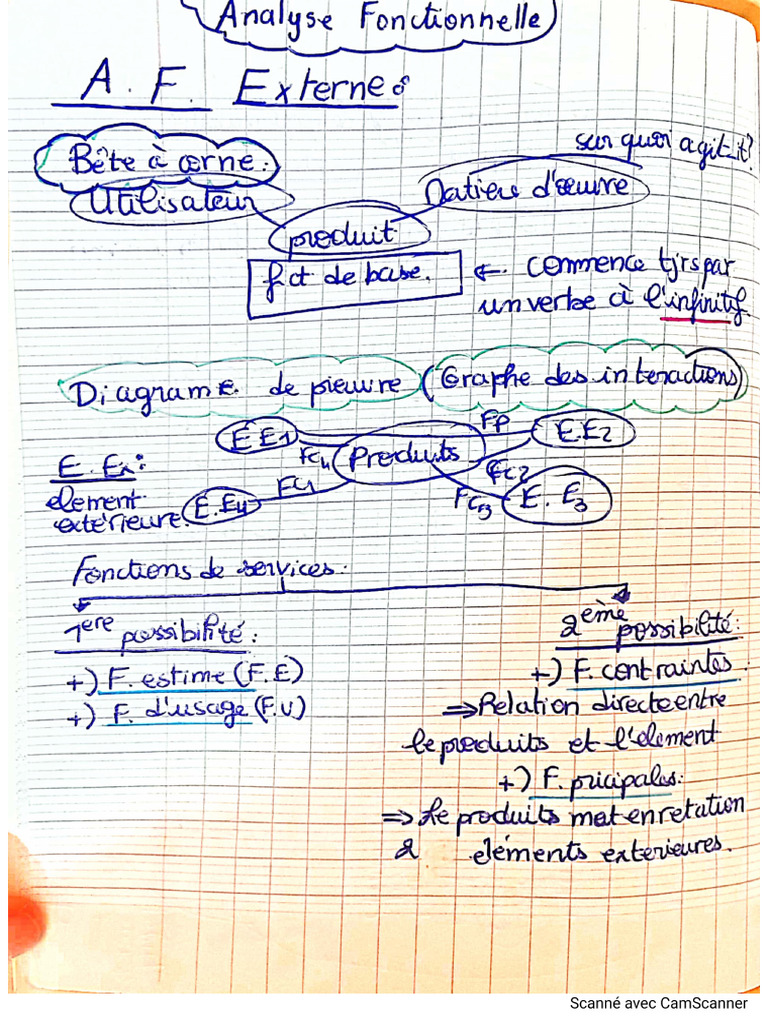 Analyse Fonctionnelle
A. F. Externe:
Bête à corne:
sur quoi agit it?
Utilisateur
Matière d'œuvre
produit
fct de base.
← commence tjrs par
un verbe à l'infinitif
Diagrame de pieuvre (Graphe des interactions)
E E1
FP
E.E2
FC4
Produits
FC2
E. Ex:
element
extérieure.
E. E4
FC1
FC3
E. E3
Fonctions de services.
1ere possibilité:
2eme possibilité:
+) F. estime (F.E)
+) F. d'usage (F.U)
+) F. contraintes.
⇒ Relation directe entre
le produits et l'element
+) F. pricipales:
⇒ Le produits met en relation
2 eléments exterieures.
Scanné avec CamScanner